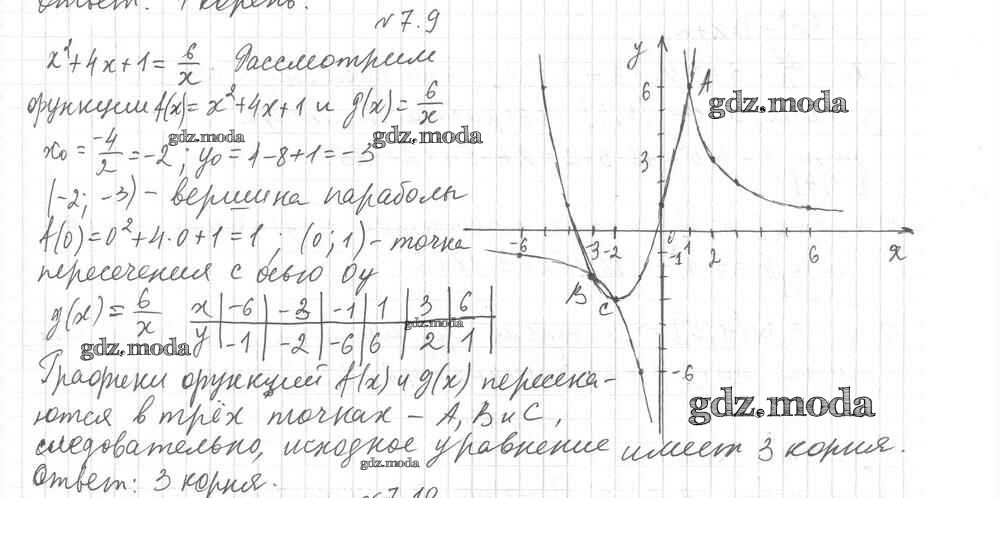 Ответ: 1 корень.
№7.9
x²+4x+1 = 6/x. Рассмотрим
функции f(x) = x²+4x+1 и g(x) = 6/x
x₀ = -4/2 = -2; y₀ = 4-8+1 = -3
(-2; -3) - вершина параболы
f(0) = 0²+4·0+1 = 1; (0; 1) - точка
пересечения с осью Oy
g(x) = 6/x
x | -6 | -3 | -1 | 1 | 3 | 6 |
y | -1 | -2 | -6 | 6 | 2 | 1 |
Графики функций f(x) и g(x) пересека-
ются в трёх точках – A, B и C,
следовательно, исходное уравнение имеет 3 корня.
Ответ: 3 корня.
№7.10
y
A
6
3
-6 -3 -2 0 -1 1 2 6 x
B
C
-6
gdz.moda
gdz.moda
gdz.moda
gdz.moda
gdz.moda
gdz.moda
gdz.moda